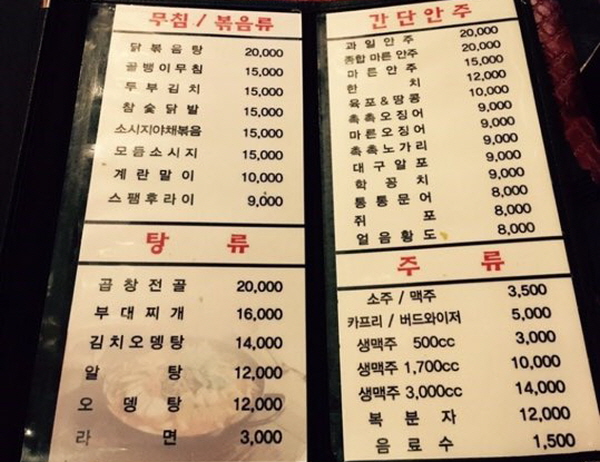 무침 / 볶음류
닭볶음탕 20,000
골뱅이무침 15,000
두부김치 15,000
참숯닭발 15,000
소시지야채볶음 15,000
모듬소시지 15,000
계란말이 10,000
스팸후라이 9,000
탕 류
곱창전골 20,000
부대찌개 16,000
김치오뎅탕 14,000
알 탕 12,000
오뎅탕 12,000
라 면 3,000
간단안주
과일안주 20,000
종합 마른 안주 20,000
마른안주 15,000
한 치 12,000
육포&땅콩 10,000
촉촉오징어 9,000
마른오징어 9,000
촉촉노가리 9,000
대구알포 9,000
학꽁치 9,000
통통문어 8,000
쥐 포 8,000
얼음황도 8,000
주 류
소주 / 맥주 3,500
카프리 / 버드와이저 5,000
생맥주 500cc 3,000
생맥주 1,700cc 10,000
생맥주 3,000cc 14,000
복분자 12,000
음료수 1,500